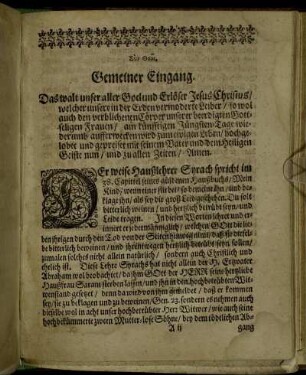 Gemeiner Eingang.
Das walt unser aller Gott und Erlöser Jesus Christus/
welcher unsere in der Erden vermoderte Leiber / so wol
auch den verblichenen Cörper unserer beerdigten Gott-
seligen Frauen / am künfftigen Jüngsten Tage wie-
der umb aufferwecken wird zum ewigen Leben/ hochge-
lobet und gepreiset mit seinem Vater und dem Heiligen
Geiste nun / und zu allen Zeiten / Amen.
DEr weise Haußlehrer Syrach spricht im
38. Capitel seines Haußbuchs/ Mein
Kind/ wenn einer stirbet/ so beweine ihn / und be-
klage ihn/ als sey dir groß Leid geschehen. Du solt
bitterlich weinen / und hertzlich betrübt seyn/ und
Leide tragen. In diesen Worten lehret und er-
innert er / welchen GOtt die lie-
ben ihrigen durch den Tod von der Seiten hinweg nimt/ daß sie
bitterlich beweinen / und hertzlich betrübt seyn sollen/
zumalen solches nicht allein natürlich/ sondern auch Christlich und
ehrlich ist. Diese Lehre Syrachs hat nicht allein der H. Ertzvater
Abraham wol beobachtet/ da ihm GOtt der HERR seine hertzliebe
Haußfrau Saram sterben lassen / und ihn in den betrübten Wit-
werstand gesetzet/ denn da wird von ihm gemeldet / daß er kommen
sey/ sie zu beklagen und zu beweinen/ Gen. 23. sondern es nehmen auch
dieselbe wol in acht unser hochbetrübter Herr Witwer / wie auch seine
hochbekümmerte zween Mutter-lose Söhne/ bey dem tödlichen Ab-
A ij
gang